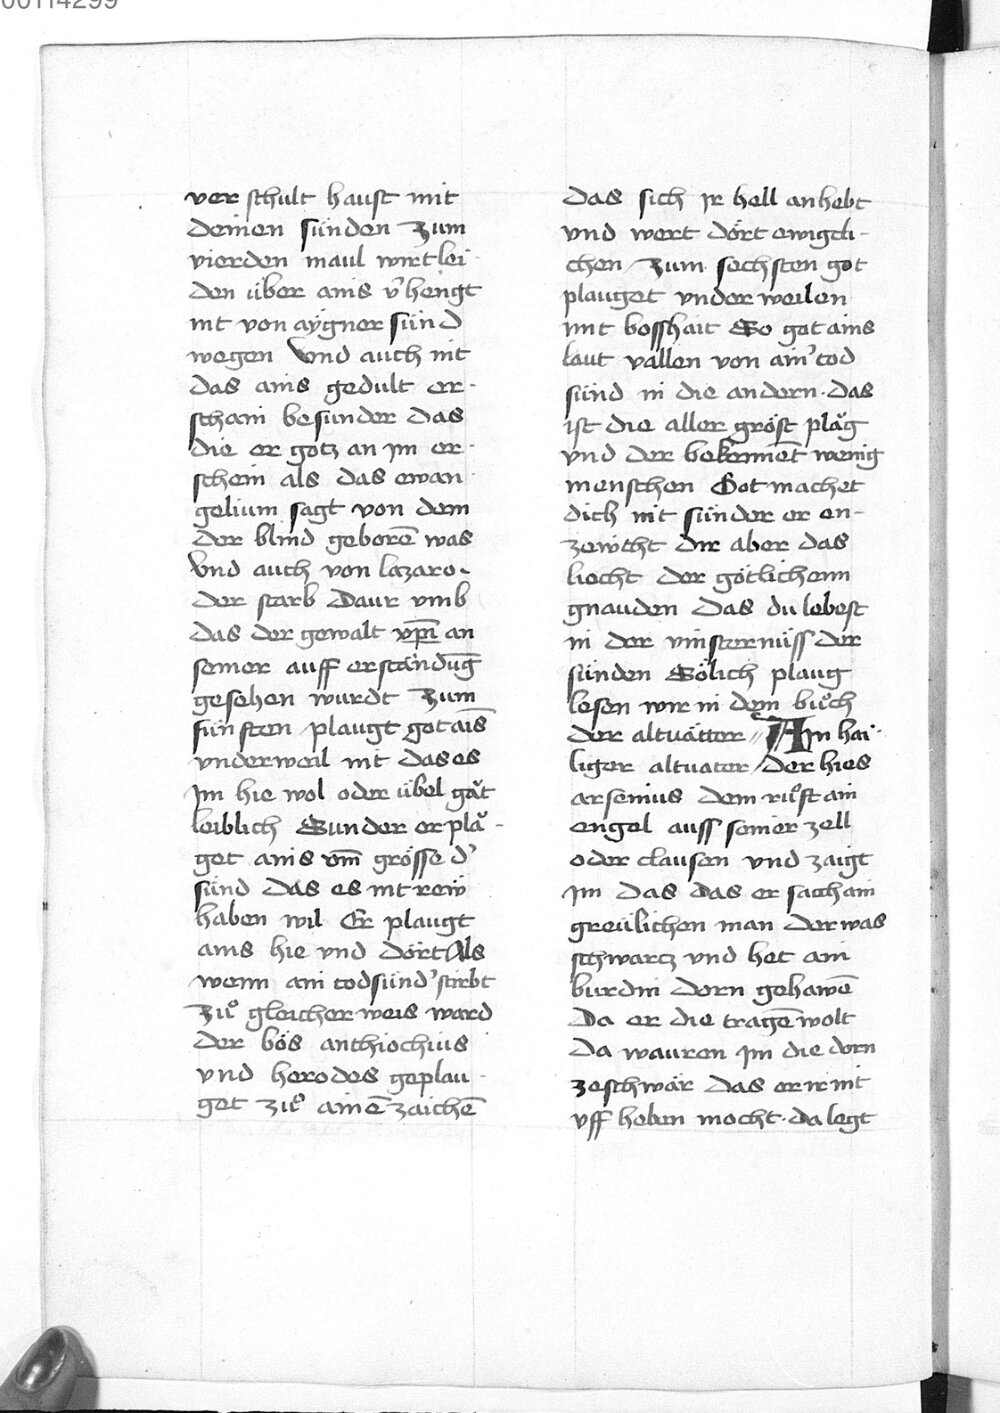 00114299
ver schult haust mit
deinen sünden Zum
vierden maul wirt lei-
den über ains v̾hengt
nit von aÿgner sünd
wegen Vnd auch nit
das ains gedult er-
schain besunder das
die er gotz an jm er-
schein als das ewan-
gelium sagt von dem
der blind geborē was
Vnd auch von lazaro
der starb Daur vmb
das der gewalt xp̄i an
seiner auff erständūg
gesehen wurdt Zum
fünften plaugt got ais̄
vnderweil nit das es
jm hie wol oder übel gǎt
leiblich Sunder er plǎ-
get ains vm̄ grösse d̾
sünd das es nit reẅ
haben wil Er plaugt
ains hie vnd dört Als
wenn ain todsünd̾ stirbt
Zuͦ gleicher weis ward
der bös anthiochius
vnd herodes geplau-
get zuͦ ainē zaichē
das sich jr hell anhebt
vnd wert dört ewigcli-
chen Zum sechsten got
plauget vnder weilen
mit bosshait So got ains
laut vallen von ain̾ tod
sünd in die andern. das
ist die aller gröst plǎg
vnd der bekennēt wenig
menschen Got machet
dich nit sünder er en-
zewcht dir aber das
liecht der götlichenn
gnauden das du lebest
in der vinsternüss der
sünden Sölich plaug
lesen wir in dem buͦch
der altuätter // Ain hai-
liger altuater / der hies
arsenius dem ruͦft ain
engel auss seiner zell
oder clausen vnd zaigt
jm das das er sach ain
greülichen man der was
schwartz vnd het ain
burdin dorn gehawē
Da er die tragē wolt
da wauren jm die dorn
zeschwär das er ir nit
vff heben mocht. da legt